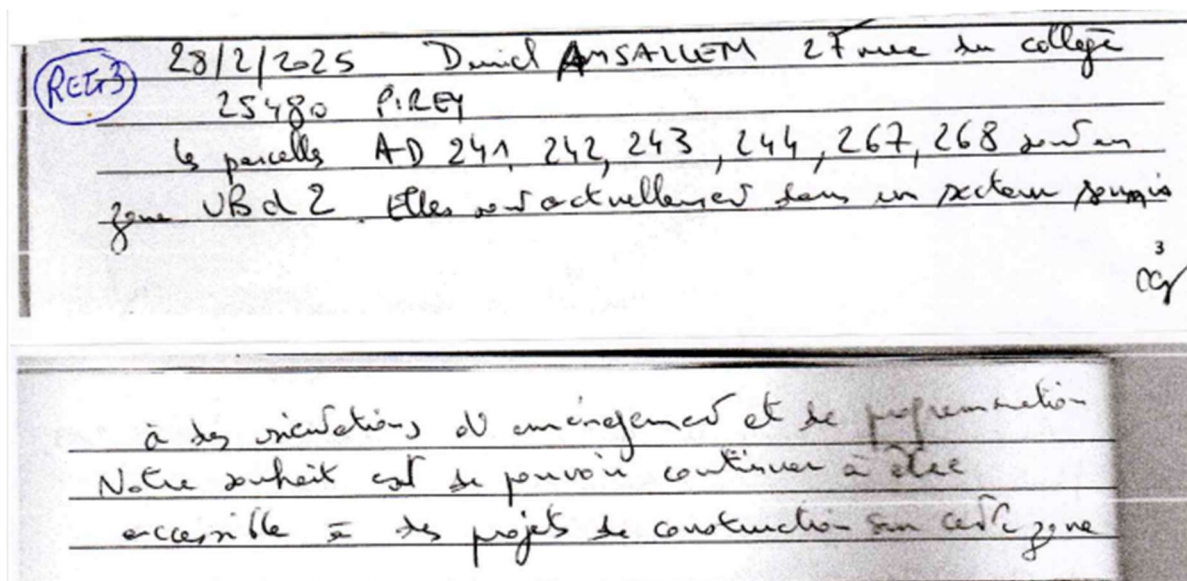 REG3
28/2/2025 Daniel AMSALLEM 27 rue du collège
25480 PIREY
les parcelles AD 241, 242, 243, 244, 267, 268 sont en
zone UBd2. Elles sont actuellement dans un secteur soumis
3
à des orientations d'aménagement et de programmation
Notre souhait est de pouvoir continuer à être
accessible à des projets de construction sur cette zone